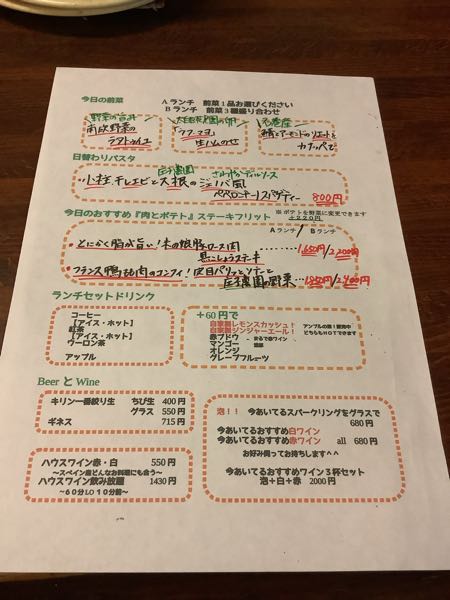 今日の前菜
Aランチ 前菜1品お選びください
Bランチ 前菜3種盛り合わせ
野菜の旨み
南欧野菜の
ラタトゥイユ
「ウフマヨ」
生ハムのせ
石巻産
鯖とアーモンドのリエットと
カナッペで
日替わりパスタ
小柱、干しエビと大根のジェノバ風
ペペロンチーノスパゲティー
800円
今日のおすすめ『肉とポテト』ステーキフリット
※ポテトを野菜に変更できます
+220円
Aランチ/Bランチ
・とにかく脂が旨い!本の根豚ロース肉
黒こしょうステーキ
1,650円/2,200円
・フランス鴨もも肉のコンフィ!皮目パリッとソテーと
庄子農園の野菜…1850円/2,400円
ランチセットドリンク
コーヒー
【アイス・ホット】
紅茶
【アイス・ホット】
ウーロン茶
アップル
+60円で
自家製レモンスカッシュ!
自家製ジンジャーエール!
赤ブドウ
マンゴー
オレンジ
グレープフルーツ
どちらもHOTできます
Beer と Wine
キリン一番絞り生 ちび生 400円
グラス 550円
ギネス 715円
ハウスワイン赤・白 550円
〜スペイン産どんなお料理にも合う〜
ハウスワイン飲み放題 1430円
〜60分LO10分前〜
泡!! 今あいてるスパークリングをグラスで
680円
今あいてるおすすめ白ワイン
今あいてるおすすめ赤ワイン all 680円
お好み伺ってお持ちします^^
今あいてるおすすめワイン3杯セット
泡+白+赤 2000円